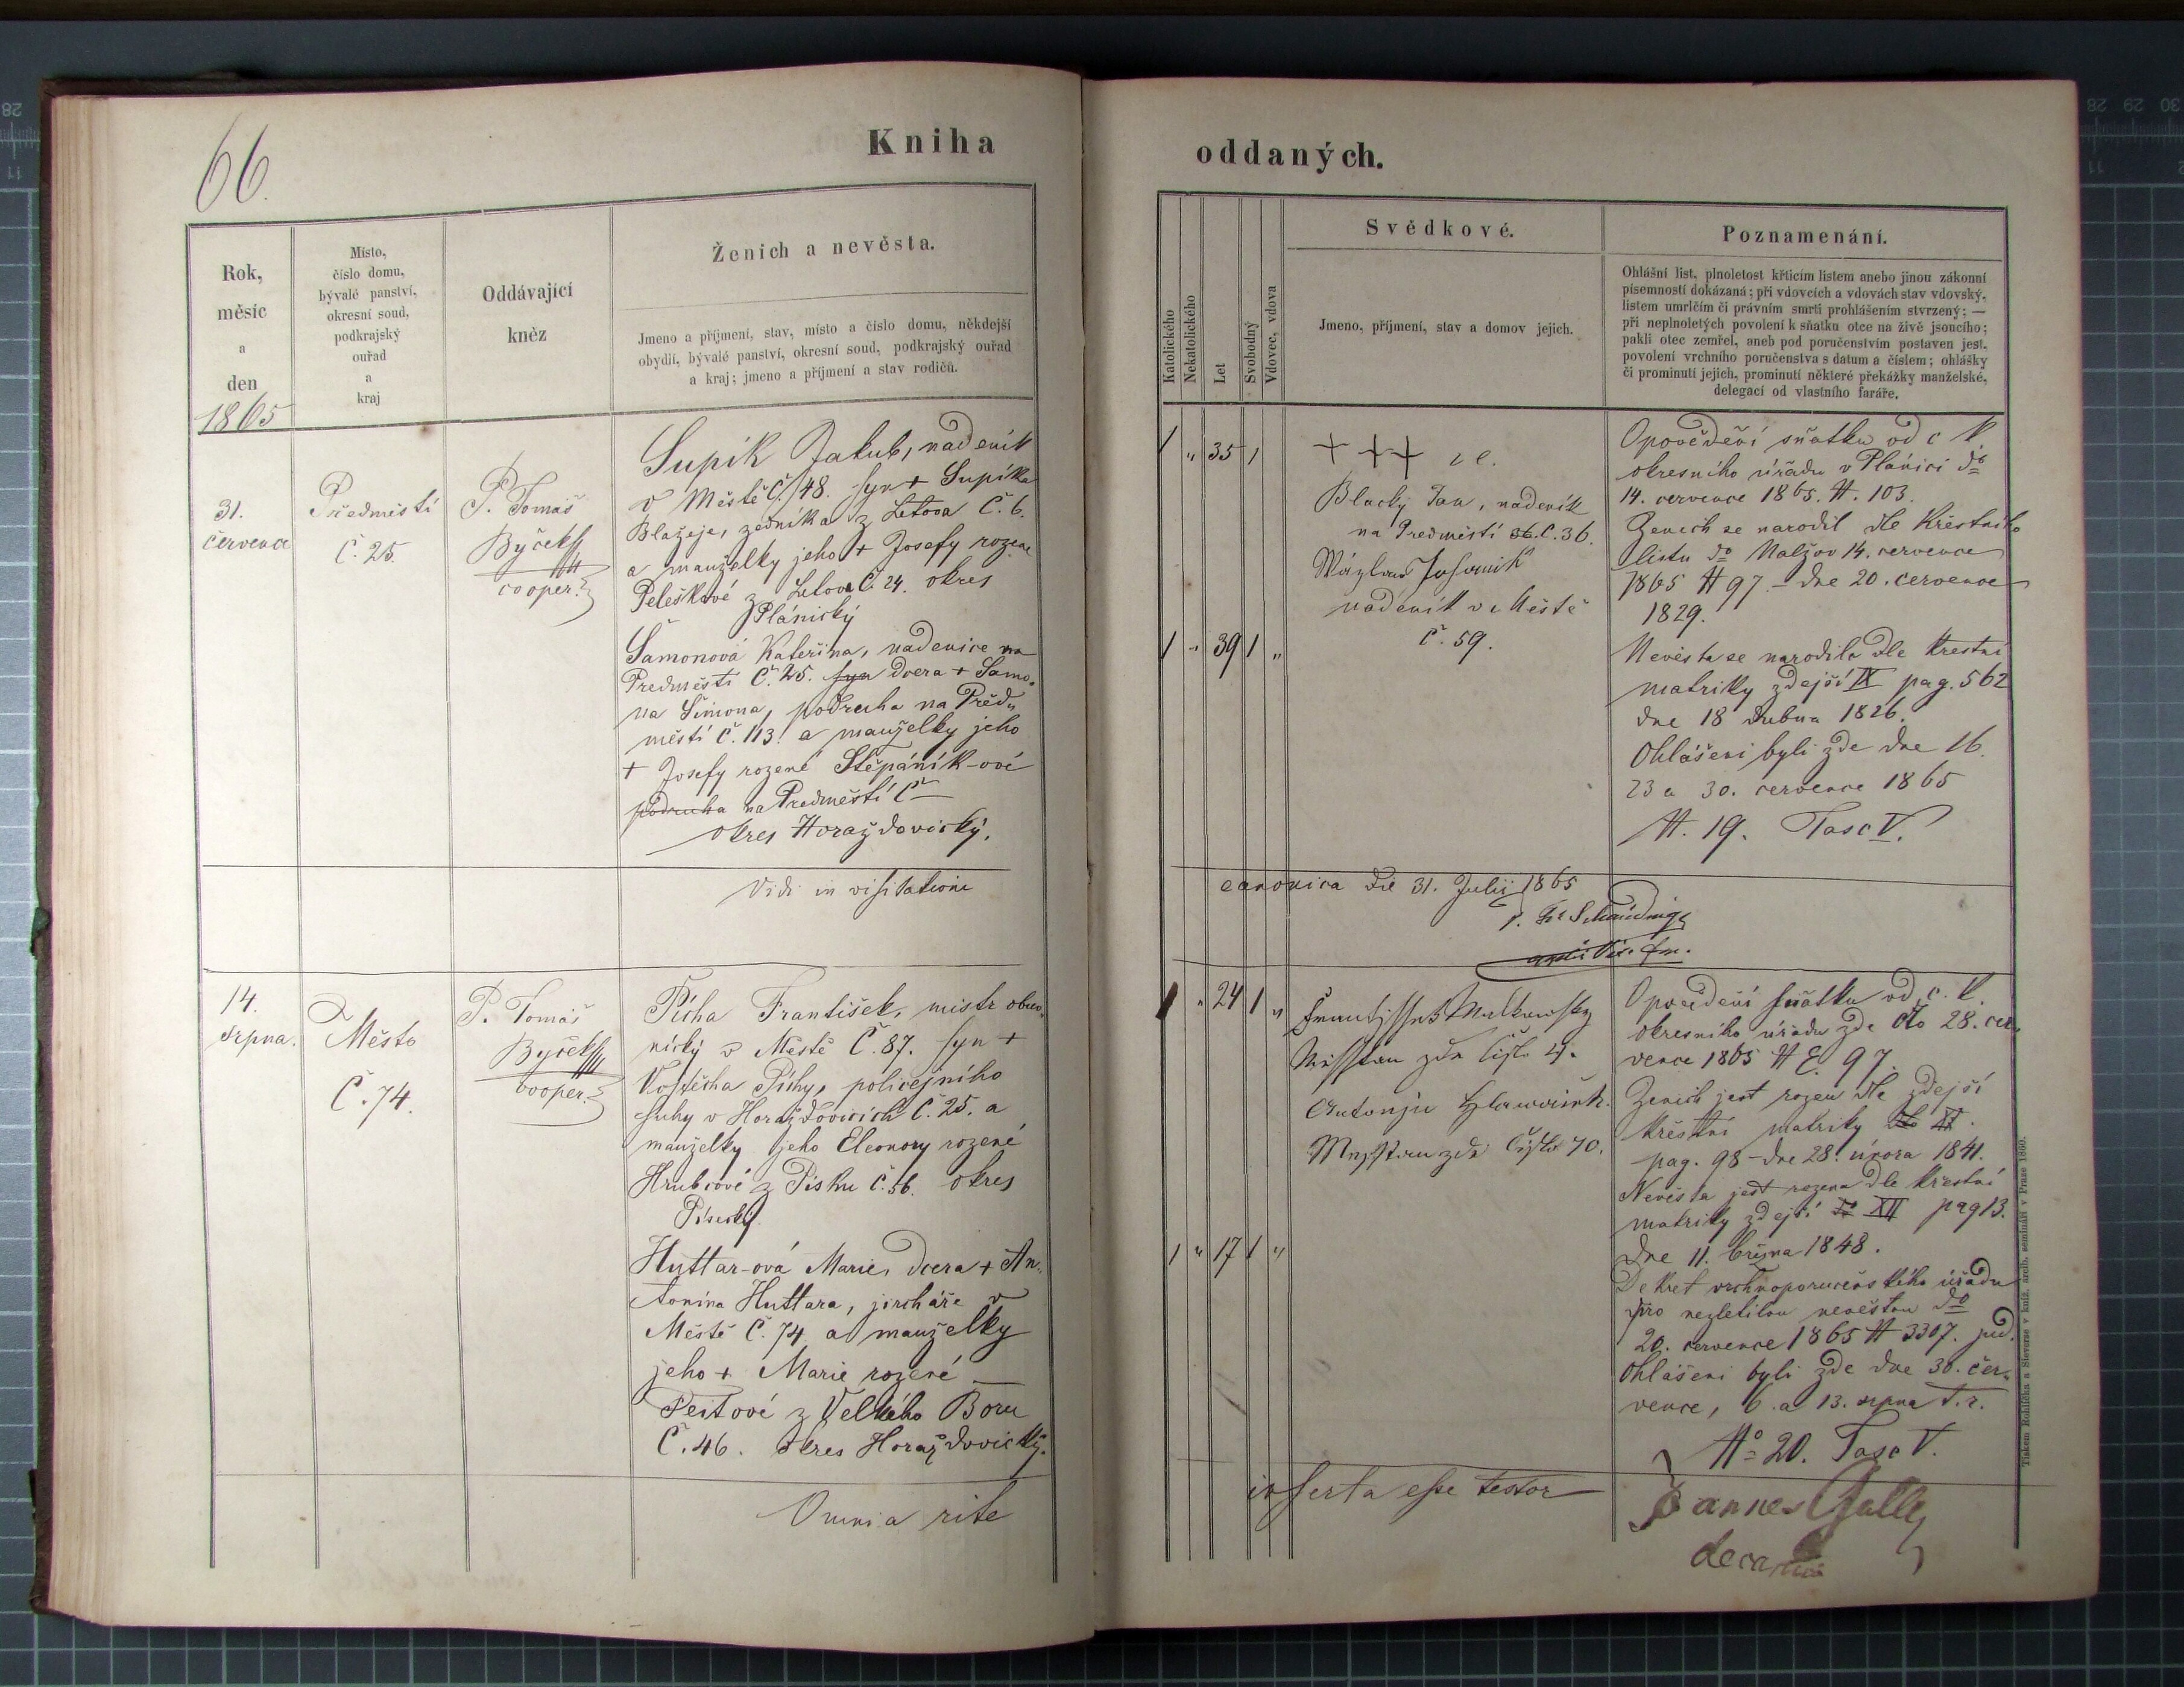 66.
Kniha
Rok,
měsíc
a
den
1865
Místo,
číslo domu,
bývalé panství,
okresní soud,
podkrajský
ouřad
a
kraj
Oddávající
kněz
Ženich a nevěsta.
Jmeno a příjmení, stav, místo a číslo domu, někdejší
obydlí, bývalé panství, okresní soud, podkrajský ouřad
a kraj; jmeno a příjmení a stav rodičů.
31.
července
Předměstí
Č. 25.
P. Tomáš
Byček
cooper.
Supík Jakub, nadeník
v Městě Č. 148. syn + Supíka
Blažeje, zedníka z Letova Č. 6.
a manželky jeho + Josefy rozené
Peleškové z Letova Č. 24. okres
Plánický
Šamonová Kateřina, nadenice na
Předměstí Č. 25. syn dcera + Šamo-
na Šimona, podruha na Před-
městí Č. 113. a manželky jeho
+ Josefy rozené Štěpáník-ové
podruha na Předměstí Č
okres Horažďovický.
Vidi in visitatione
14.
srpna.
Město
Č. 74.
P. Tomáš
Byček
cooper.
Pícha František, mistr obuv-
nický v Městě Č. 87. syn +
Vojtěcha Píchy, policejního
sluhy v Horažďovicích Č. 25. a
manželky jeho Eleonory rozené
Hrubcové z Písku č. 56. okres
Písecký.
Huttar-ová Marie, dcera + An-
tonína Huttara, jircháře v
Městě Č. 74 a manželky
jeho + Marie rozené
Peitové z Velkého Boru
Č. 46. okres Horažďovický.
Omnia rite
oddaných.
Katolického
Nekatolického
Let
Svobodný
Vdovec, vdova
Svědkové.
Jmeno, příjmení, stav a domov jejich.
Poznamenání.
Ohlášní list, plnoletost křticím listem anebo jinou zákonní
písemností dokázaná; při vdovcích a vdovách stav vdovský,
listem umrlčím či právním smrti prohlášením stvrzený; —
při neplnoletých povolení k sňatku otce na živě jsoucího;
pakli otec zemřel, aneb pod poručenstvím postaven jest,
povolení vrchního poručenstva s datum a číslem; ohlášky
či prominutí jejich, prominutí některé překážky manželské,
delegací od vlastního faráře.
1 " 35 1
+ + +
Blacky Jan, nadeník
na Předměstí 36. Č. 36.
nadeník v Městě
č. 59.
1 " 39 1 "
Opovědění sňatku od c. k.
okresního úřadu v Plánici do
14. července 1865. N. 103.
Ženich se narodil dle křestního
listu do Nalžov 14. července
1865 N 97. – dne 20. července
1829.
Nevěsta se narodila dle křestní
matriky zdejší IX pag. 562
dne 18 dubna 1826.
Ohlášeni byli zde dne 16.
23 a 30. července 1865
N. 19. Fasc V.
canonica die 31. Julii 1865
1 " 24 1 "
zde číslo 4.
zde číslo 70.
1 " 17 1 "
Opovědění sňatku od c. k.
okresního úřadu zde dto 28. čer-
vence 1865 N E. 97.
Ženich jest rozen dle zdejší
křestní matriky XI.
pag. 98 – dne 28. února 1841.
Nevěsta jest rozena dle křestní
matriky zdejší XII pag 13.
dne 11. března 1848.
Dekret vrchnoporučenského úřadu
pro nezletilou nevěstou do
20. července 1865 N 3307. jud.
Ohlášeni byli zde dne 30. čer-
vence, 6. a 13. srpna t. r.
No 20. Fasc V.
inserta esse testor
Joannes Galle
decanus
Tiskem Rohlíčka a Sieverse v kníž. arcib. semináři v Praze 1860.